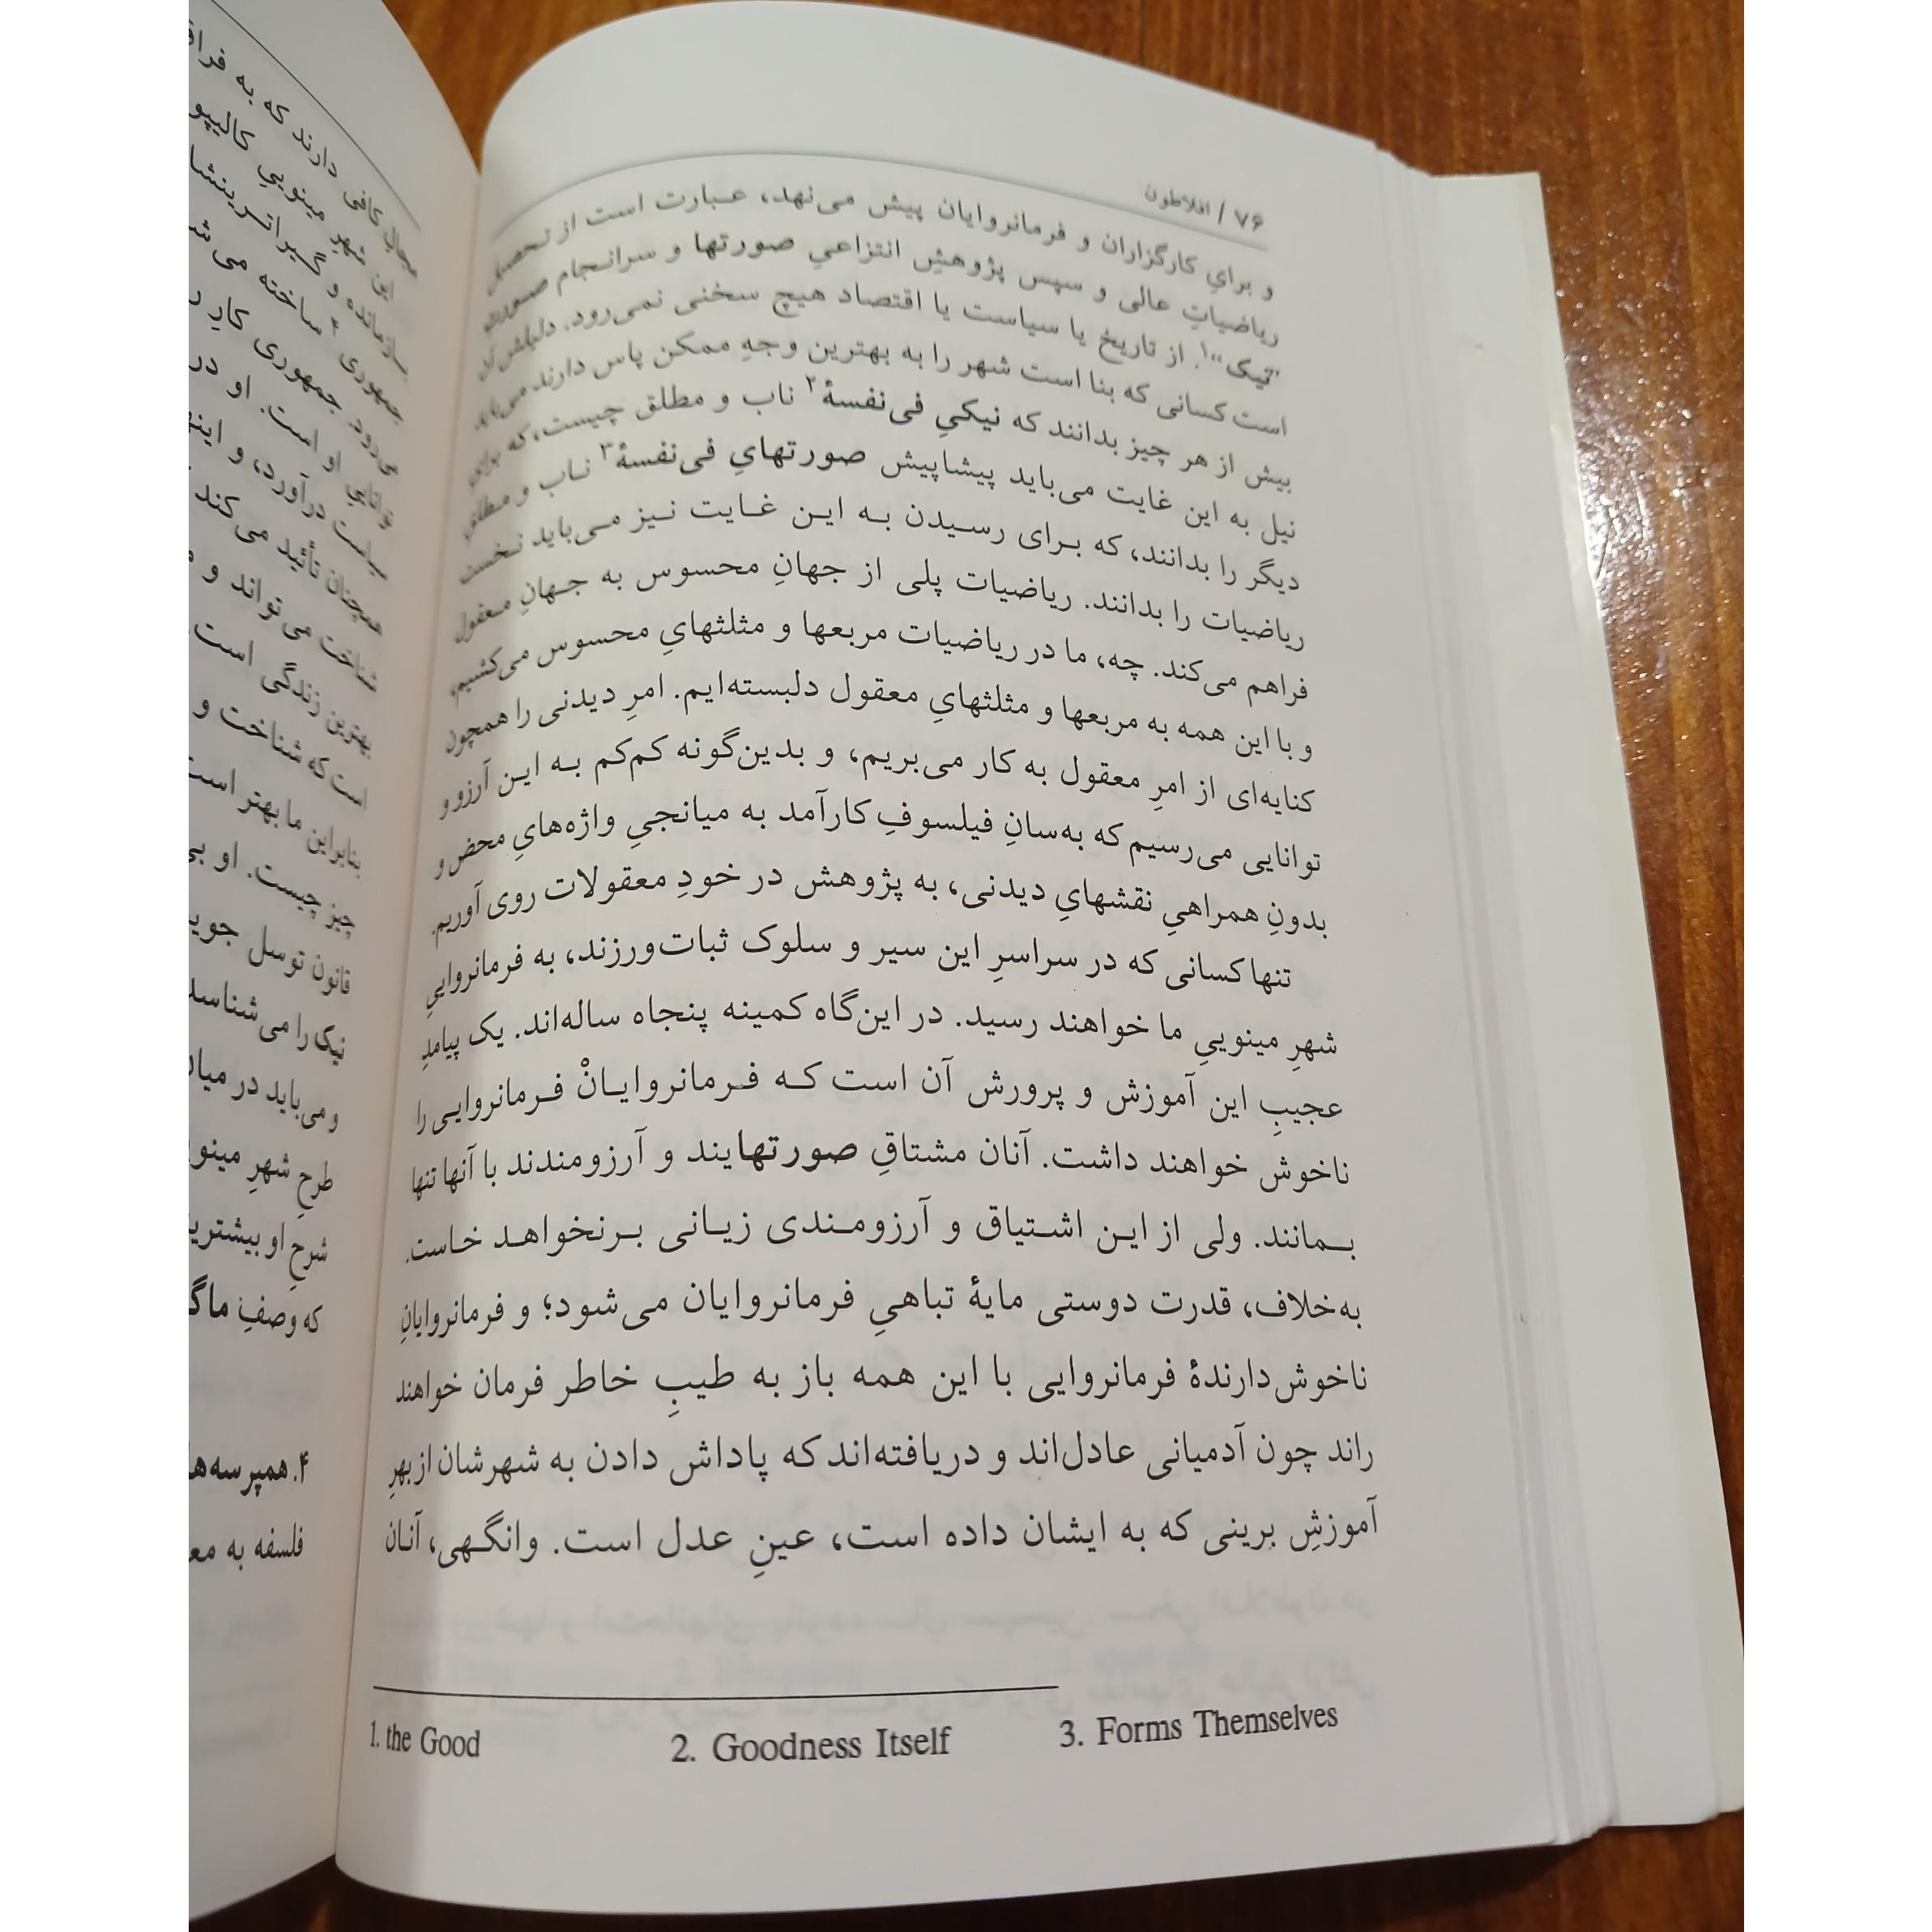 ۷۶ / افلاطون
و برایِ کارگزاران و فرمانروایان پیش می‌نهد، عبارت است از تحصیل
ریاضیاتِ عالی و سپس پژوهشِ انتزاعیِ صورتها و سرانجام صورت
"نیک"۱. از تاریخ یا سیاست یا اقتصاد هیچ سخنی نمی‌رود. دلیلش آن
است کسانی که بنا است شهر را به بهترین وجهِ ممکن پاس دارند می‌باید
بیش از هر چیز بدانند که نیکیِ فی‌نفسهٔ۲ ناب و مطلق چیست، که برای
نیل به این غایت می‌باید پیشاپیش صورتهایِ فی‌نفسهٔ۳ ناب و مطلق
دیگر را بدانند، که برای رسیدن به این غایت نیز می‌باید نخست
ریاضیات را بدانند. ریاضیات پلی از جهانِ محسوس به جهانِ معقول
فراهم می‌کند. چه، ما در ریاضیات مربعها و مثلثهایِ محسوس می‌کشیم،
و با این همه به مربعها و مثلثهایِ معقول دلبسته‌ایم. امرِ دیدنی را همچون
کنایه‌ای از امرِ معقول به کار می‌بریم، و بدین‌گونه کم‌کم به این آرزو و
توانایی می‌رسیم که به‌سانِ فیلسوفِ کارآمد به میانجیِ واژه‌هایِ محض و
بدونِ همراهیِ نقشهایِ دیدنی، به پژوهش در خودِ معقولات روی آوریم.
تنها کسانی که در سراسرِ این سیر و سلوک ثبات‌ورزند، به فرمانرواییِ
شهرِ مینوییِ ما خواهند رسید. در این‌گاه کمینه پنجاه ساله‌اند. یک پیامدِ
عجیبِ این آموزش و پرورش آن است که فرمانروایانْ فرمانروایی را
ناخوش خواهند داشت. آنان مشتاقِ صورتهایند و آرزومندند با آنها تنها
بمانند. ولی از این اشتیاق و آرزومندی زیانی برنخواهد خاست.
به‌خلاف، قدرت دوستی مایهٔ تباهیِ فرمانروایان می‌شود؛ و فرمانروایانِ
ناخوش‌دارندهٔ فرمانروایی با این همه باز به طیبِ خاطر فرمان خواهند
راند چون آدمیانی عادل‌اند و دریافته‌اند که پاداش دادن به شهرشان از بهرِ
آموزشِ برینی که به ایشان داده است، عینِ عدل است. وانگهی، آنان
1. the Good 2. Goodness Itself 3. Forms Themselves
مجالِ کافی دارند که به
این شهرِ مینوییِ
بازمانده و
جمهوری۴ ساخته
می‌رود. جمهوری کارِ
تواناییِ او است. او در
سیاست درآورد، و
همچنان تأئید می‌کند
شناخت می‌تواند و
بهترین زندگی است
است که شناخت و
بنابراین ما بهتر است
چیز چیست. او
قانون توسل
نیک را می‌شناسد
و می‌باید در
طرحِ شهرِ
شرحِ او
که وصفِ
۴. همپرسه
فلسفه به